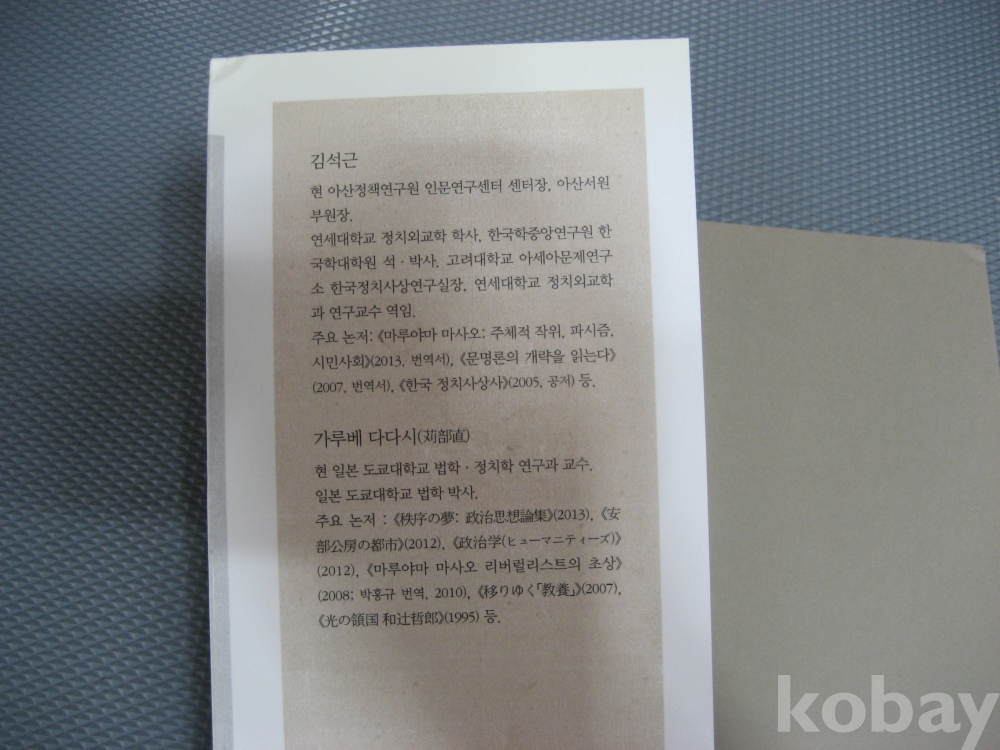 김석근
현 아산정책연구원 인문연구센터 센터장, 아산서원
부원장.
연세대학교 정치외교학 학사, 한국학중앙연구원 한
국학대학원 석·박사. 고려대학교 아세아문제연구
소 한국정치사상연구실장, 연세대학교 정치외교학
과 연구교수 역임.
주요 논저: 《마루야마 마사오: 주체적 작위, 파시즘,
시민사회》(2013, 번역서), 《문명론의 개략을 읽는다》
(2007, 번역서), 《한국 정치사상사》(2005, 공저) 등.
가루베 다다시(苅部直)
현 일본 도쿄대학교 법학·정치학 연구과 교수.
일본 도쿄대학교 법학 박사.
주요 논저 : 《秩序の夢: 政治思想論集》(2013), 《安
部公房の都市》(2012), 《政治学(ヒューマニティーズ)》
(2012), 《마루야마 마사오 리버럴리스트의 초상》
(2008; 박홍규 번역, 2010), 《移りゆく「教養」》(2007),
《光の領国 和辻哲郎》(1995) 등.
kobay